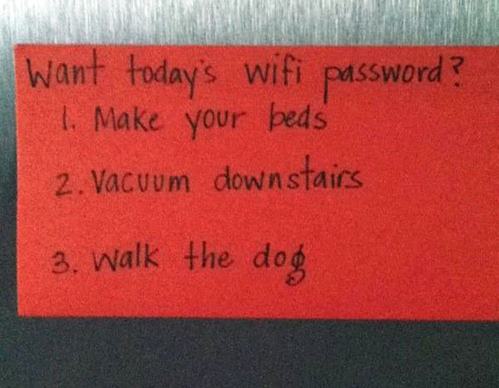 Want today's wifi password?
1. Make your beds
2. Vacuum downstairs
3. Walk the dog